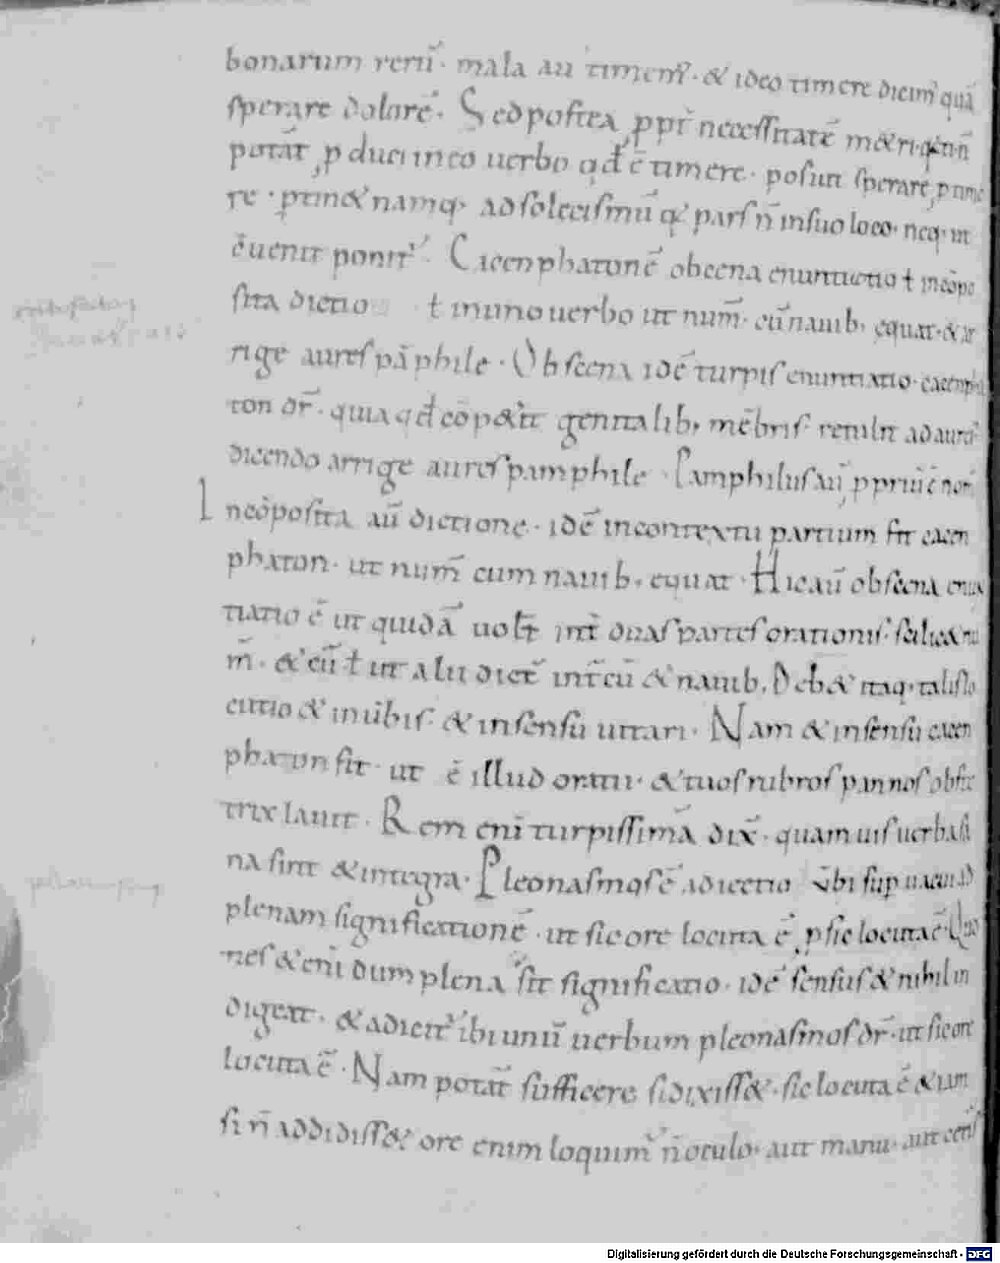 bonarum rerū· mala au timem̄· & ideo timere dicim̄ quā
sperare dolorē· Sed postea ꝓpt̄ necessitatē m&ri· qn̄ n̄
potāt ꝓduci in eo uerbo qđ ē timere· posuit sperare ꝓ time
re· ptin& namq· ad soleeismū q& pars n̄ in suo loco· neq· ut
ēuenit ponit̄· Cacenphatonē obscena enuntiatio ł incōpo
sita dictio ł in uno uerbo ut num̄· cū nauib· equat· & ar
rige aures pāphile· Obscena idē turpis enuntiatio· cacenpha
ton dr̄· quia qđ cōp&it genitalib, mēbris· retulit ad aures
dicendo arrige aures pamphile· Pamphilus aū ꝓpriū ē nom̄
Incōposita aū dictione· idē in contextu partium fit cacen
phaton· ut num̄ cum nauib, equat· Hic aū obscena enun
tiatio ē ut quidā uolt̄ int̄ duas partes orationis· scilic& nu
m̄· & cū ł ut alii dict̄ int̄ cū & nauib, Deb& itaq· talis lo
cutio & in ūbis· & in sensu uitari· Nam & in sensu cacen
phaton fit· ut ē illud oratii· & tuos rubros pannos obste
trix lauit· Rem eni turpissimā dix̄· quam uis uerba si
na sint & integra· Pleonasmos ē adiectio ūbi sup uacui ad
plenam significationē· ut sic ore locuta ē ꝓ sic locuta ē· Quo
nes & eni dum plena sit significatio· idē sensus & nihil in
digeat· & adicit̄ ibi unū uerbum pleonasmos dr̄· ut sic ore
locuta ē· Nam potāt sufficere si dixiss&· sic locuta ē & iam
si n̄ addidiss& ore enim loquim̄ n̄ oculo· aut manu· aut
Digitalisierung gefördert durch die Deutsche Forschungsgemeinschaft - DFG